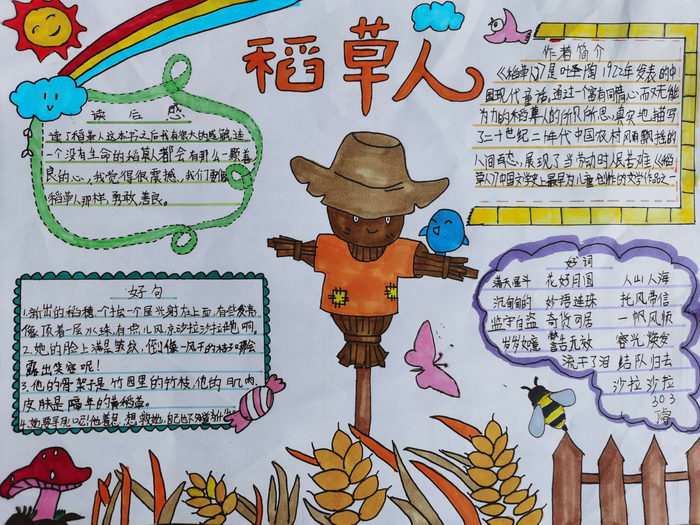 稻草人
读后感
一个没有生命的稻草人都会有那么一颗善
良的心，我觉得很震撼，我们要像
稻草人那样，勇敢，善良。
作者简介
《稻草人》是叶圣陶1922年发表的中
国现代童话，通过一个富有同情心而又无能
为力的稻草人的所见所思，真实地描写
了二十世纪二十年代中国农村风雨飘摇的
人间百态，展现了当劳动时人民苦难《稻
草人》中国文学史上最早为儿童创作的文学作品之一
好句
1.新出的稻穗一个挨一个星光射在上面，有些发亮
像顶着一层水珠，有一点儿风，就沙拉沙拉地响。
2.她的脸上满是皱纹，倒像一风干的桔子
露出笑容呢！
3.他的骨架子是竹园里的竹枝，他的肌肉，
皮肤是隔年的黄稻草。
好词
满天星斗 花好月圆 人山人海
沉甸甸的 妙语连珠 托风带信
奇货可居 一帆风顺
警告无效 容光焕发
流干了泪 结队归去
沙拉沙拉
303